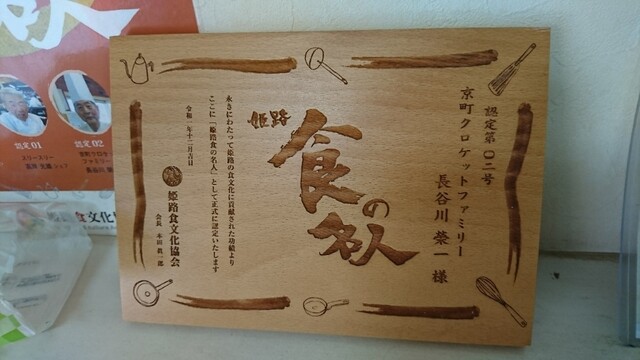 認定第〇二号
京町クロケットファミリー
長谷川 榮一 様
姫路
食の名人
永きにわたって姫路の食文化に貢献された功績より
ここに「姫路食の名人」として正式に認定いたします
令和一年十二月吉日
姫路食文化協会
会長 本田 眞一郎
名人
認定01
認定02
食文化協